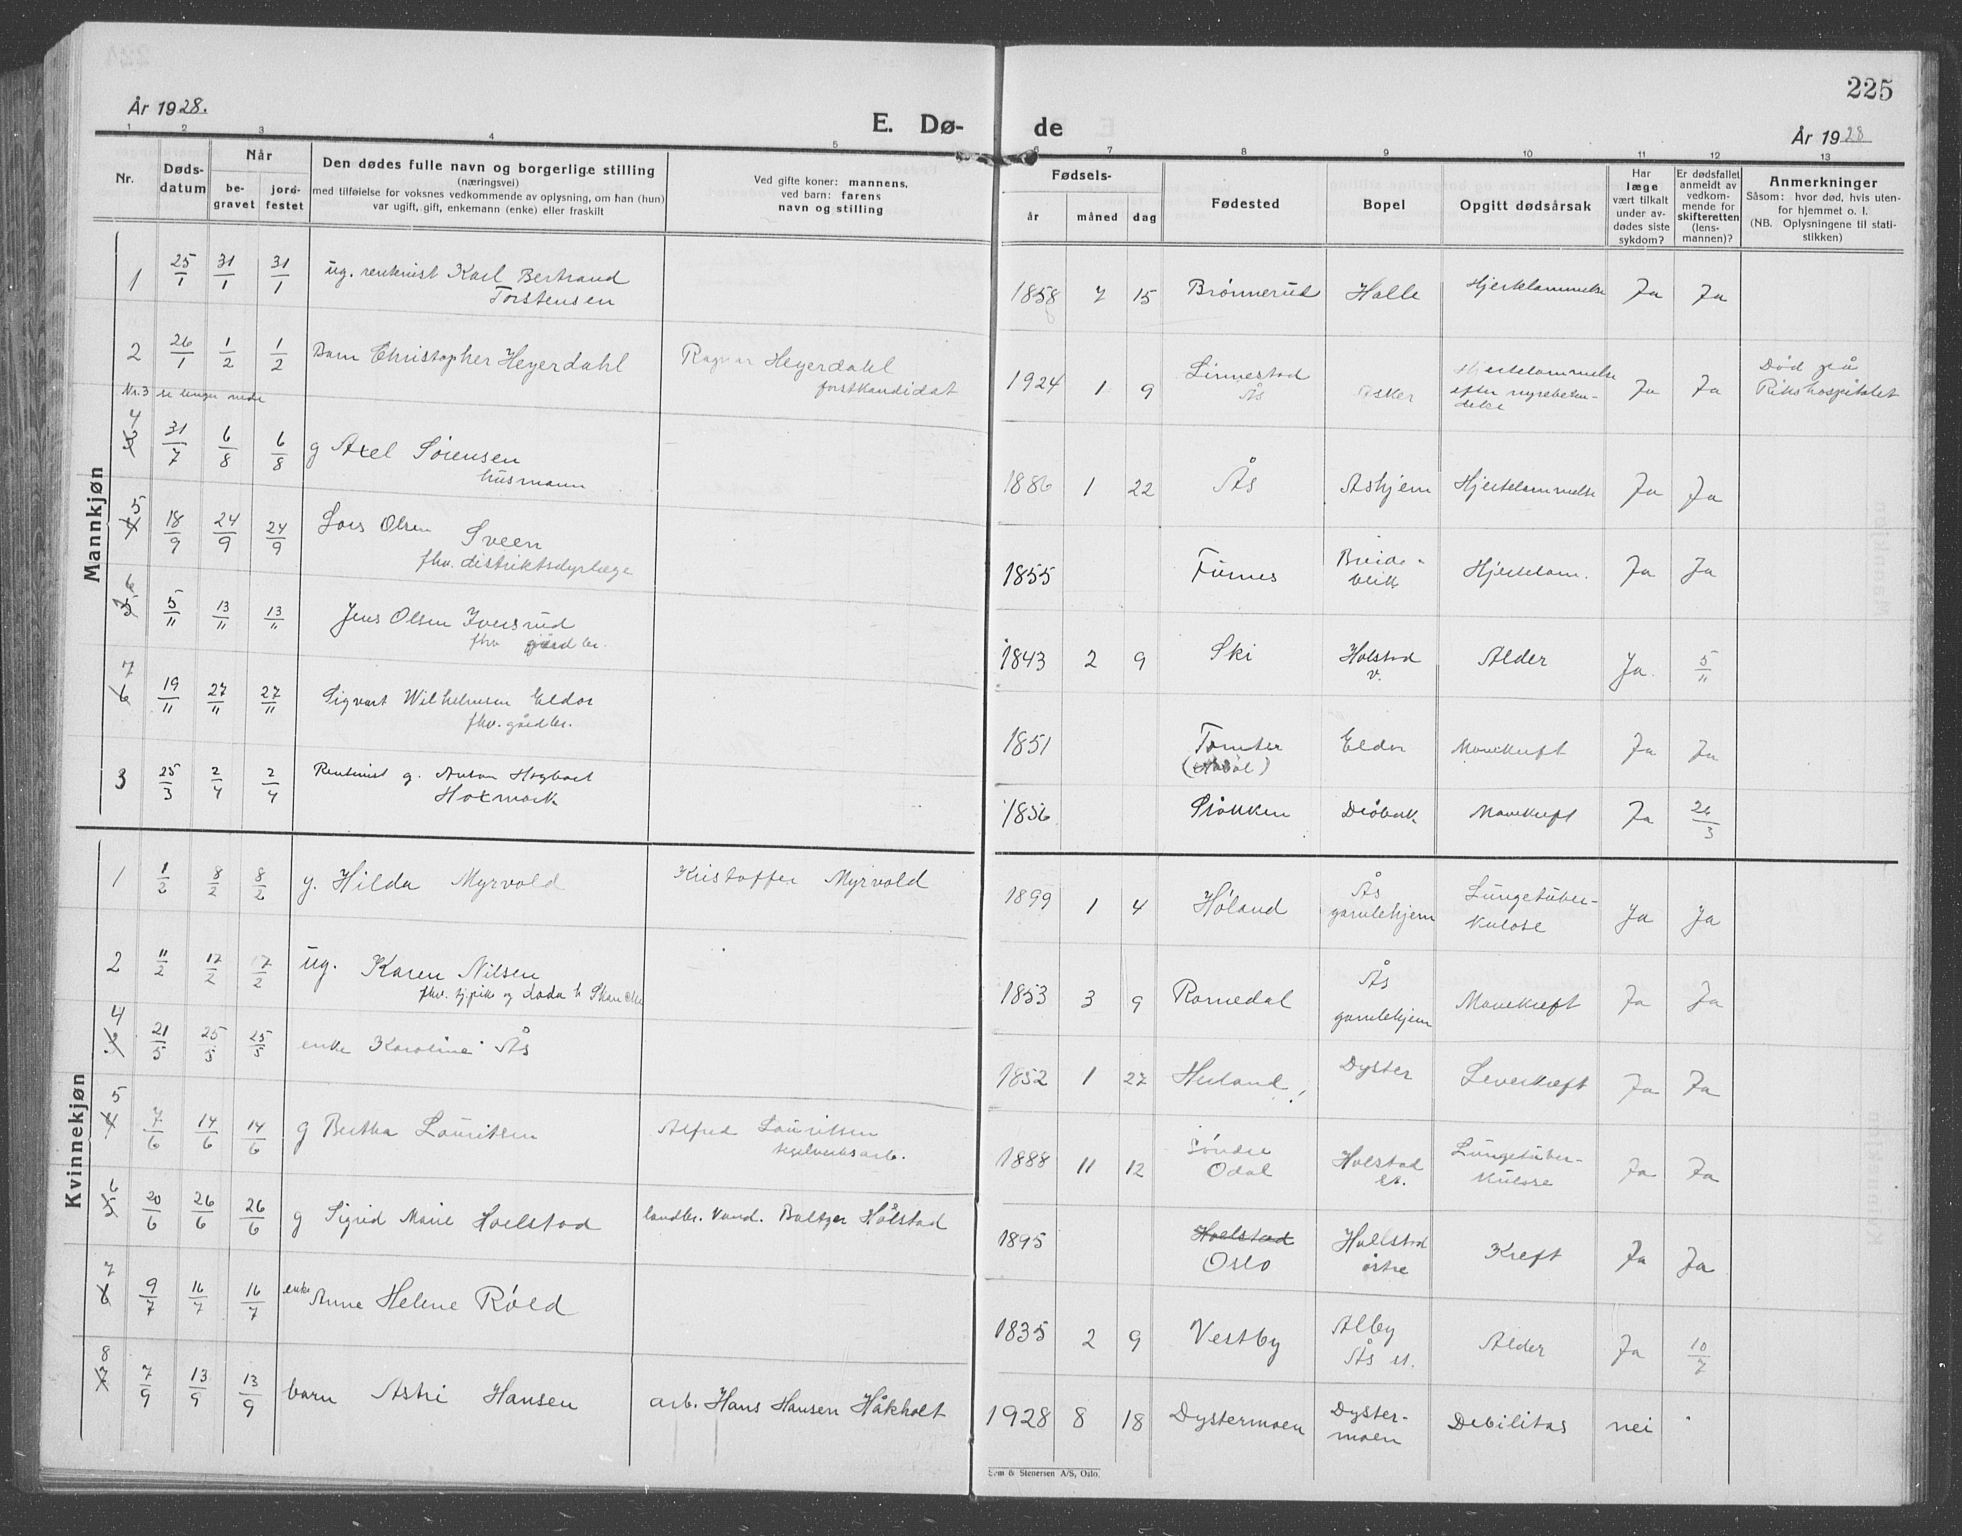 225
År 1928.
E. Dø-
de
År 1928
1 2 3 4 5 6 7 8 9 10 11 12 13
Nr.
Døds-
datum
Når
be-
gravet
jord-
festet
Den dødes fulle navn og borgerlige stilling
(næringsvei)
med tilføielse for voksnes vedkommende av oplysning, om han (hun)
var ugift, gift, enkemann (enke) eller fraskilt
Ved gifte koner: mannens,
ved barn: farens
navn og stilling
Fødsels-
år måned dag
Fødested
Bopel
Opgitt dødsårsak
Har
læge
vært tilkalt
under av-
dødes siste
sykdom?
Er dødsfallet
anmeldt av
vedkom-
mende for
skifteretten
(lens-
mannen)?
Anmerkninger
Såsom: hvor død, hvis uten-
for hjemmet o. l.
(NB. Oplysningene til stati-
stikken)
Mannkjøn
1 25/1 31/1 31/1 ug. rentenist Karl Bertrand
Torstensen
1858 7 15 Brønnerud Holle Hjertelammelse Ja Ja
2 26/1 1/2 1/2 Barn Christopher Heyerdahl Ragnar Heyerdahl
forstkandidat
1924 1 9 Linnestad
Ås
Asker Hjertelammelse
efter nyrebeten-
delse
Ja Ja Død på
Rikshospitalet
Nr. 3 se lenger nede
4 31/7 6/8 6/8 g Axel Sørensen
husmann
1886 1 22 Ås Askjem Hjertelammelse Ja Ja
5 18/9 24/9 24/9 Lars Olsen Sveen
fhv. distriktsdyrlæge
1855 Furnes Breide-
blik
Hjertelam. Ja Ja
6 5/11 13/11 13/11 Jens Olsen Iversrud
fhv gårdbr.
1843 2 9 Ski Holstad
v.
Alder Ja. 5/11
7 19/11 27/11 27/11 Sigvart Wilhelmsen Eldor
fhv. gårdbr.
1851 Tomter
(Hobøl)
Eldor Mavekreft Ja Ja
3 25/3 2/4 2/4 Rentenist g. Anton Hagbart
Hoxmark
1856 Drøbak Mavekreft Ja 26/3
Kvinnekjøn
1 1/2 8/2 8/2 g. Hilda Myrvold Kristoffer Myrvold
1899 1 4 Høland Ås
gamlehjem
Lungetuber-
kulose
Ja Ja
2 11/2 17/2 17/2 ug. Karen Nilsen
fhv. tj.pike
1853 3 9 Romedal Ås
gamlehjem
Mavekreft Ja Ja
4 21/5 25/5 25/5 enke Karoline Ås
1852 1 27 Dyster Leverkreft Ja Ja
5 7/6 14/6 14/6 g Bertha Lauritsen Alfred Lauritsen
teglverksarb.
1888 11 12 Søndre
Odal
Holstad
st.
Lungetuber-
kulose
Ja Ja
6 20/6 26/6 26/6 g Sigrid Marie Hoelstad landbr. Vand. Baltzer Hålstad
1895 Hoelstad
Oslo
Hoelstad
østre
Kreft Ja Ja
7 9/7 16/7 16/7 enke Anne Helene Røed
1835 2 9 Vestby Alby
Ås st.
Alder Ja 10/7
8 7/9 13/9 13/9 barn Astri Hansen arb. Hans Hansen Håkholt
1928 8 18 Dystermoen Dyster-
moen
Debilitas nei
Sem & Stenersen A/S, Oslo.